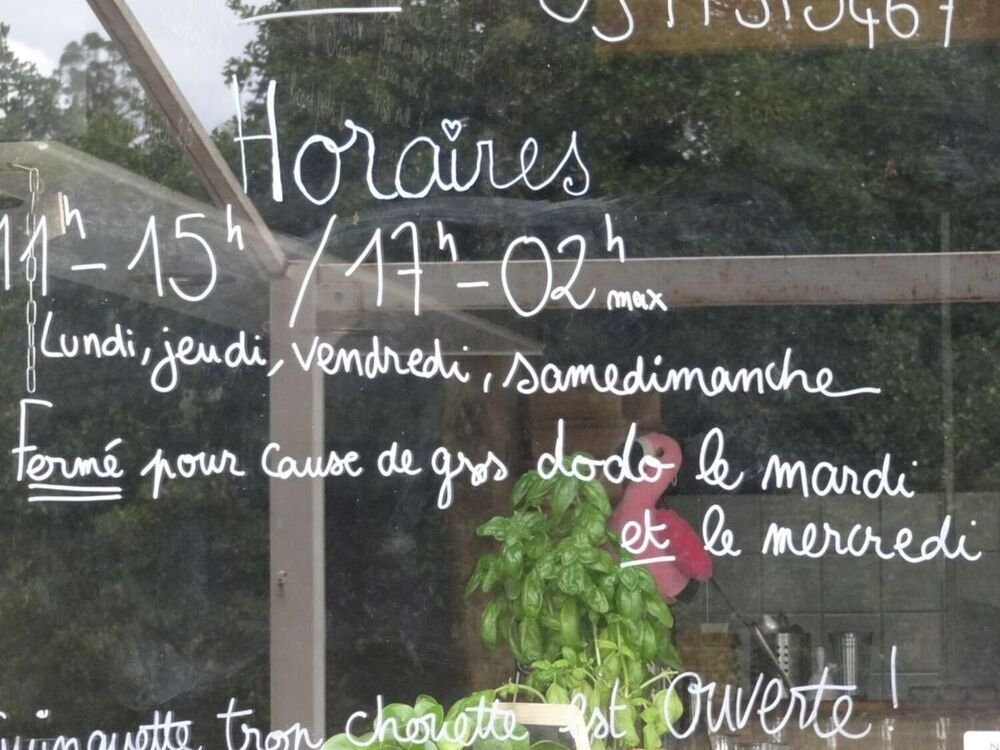 Horaires
11h - 15h / 17h - 02h max
Lundi, jeudi, vendredi, samedimanche
Fermé pour cause de gros dodo le mardi
et le mercredi
trop chouette est ouverte !